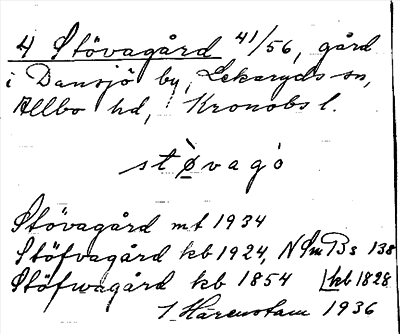 4 Stövagård 41/56, gård
i Dansjö by, Lekaryds sn,
Allbo hd, Kronobs l.
stø̀vagò
Stövagård mt 1934
Stöfvagård kb 1924, NSmBs 138
Stöfwagård kb 1854 kb 1828
I Harenstam 1936